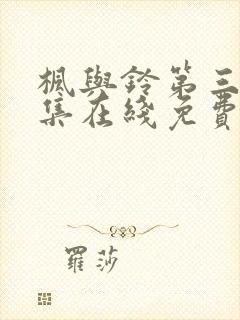 楓與鈴第三
集在綫免費
羅莎